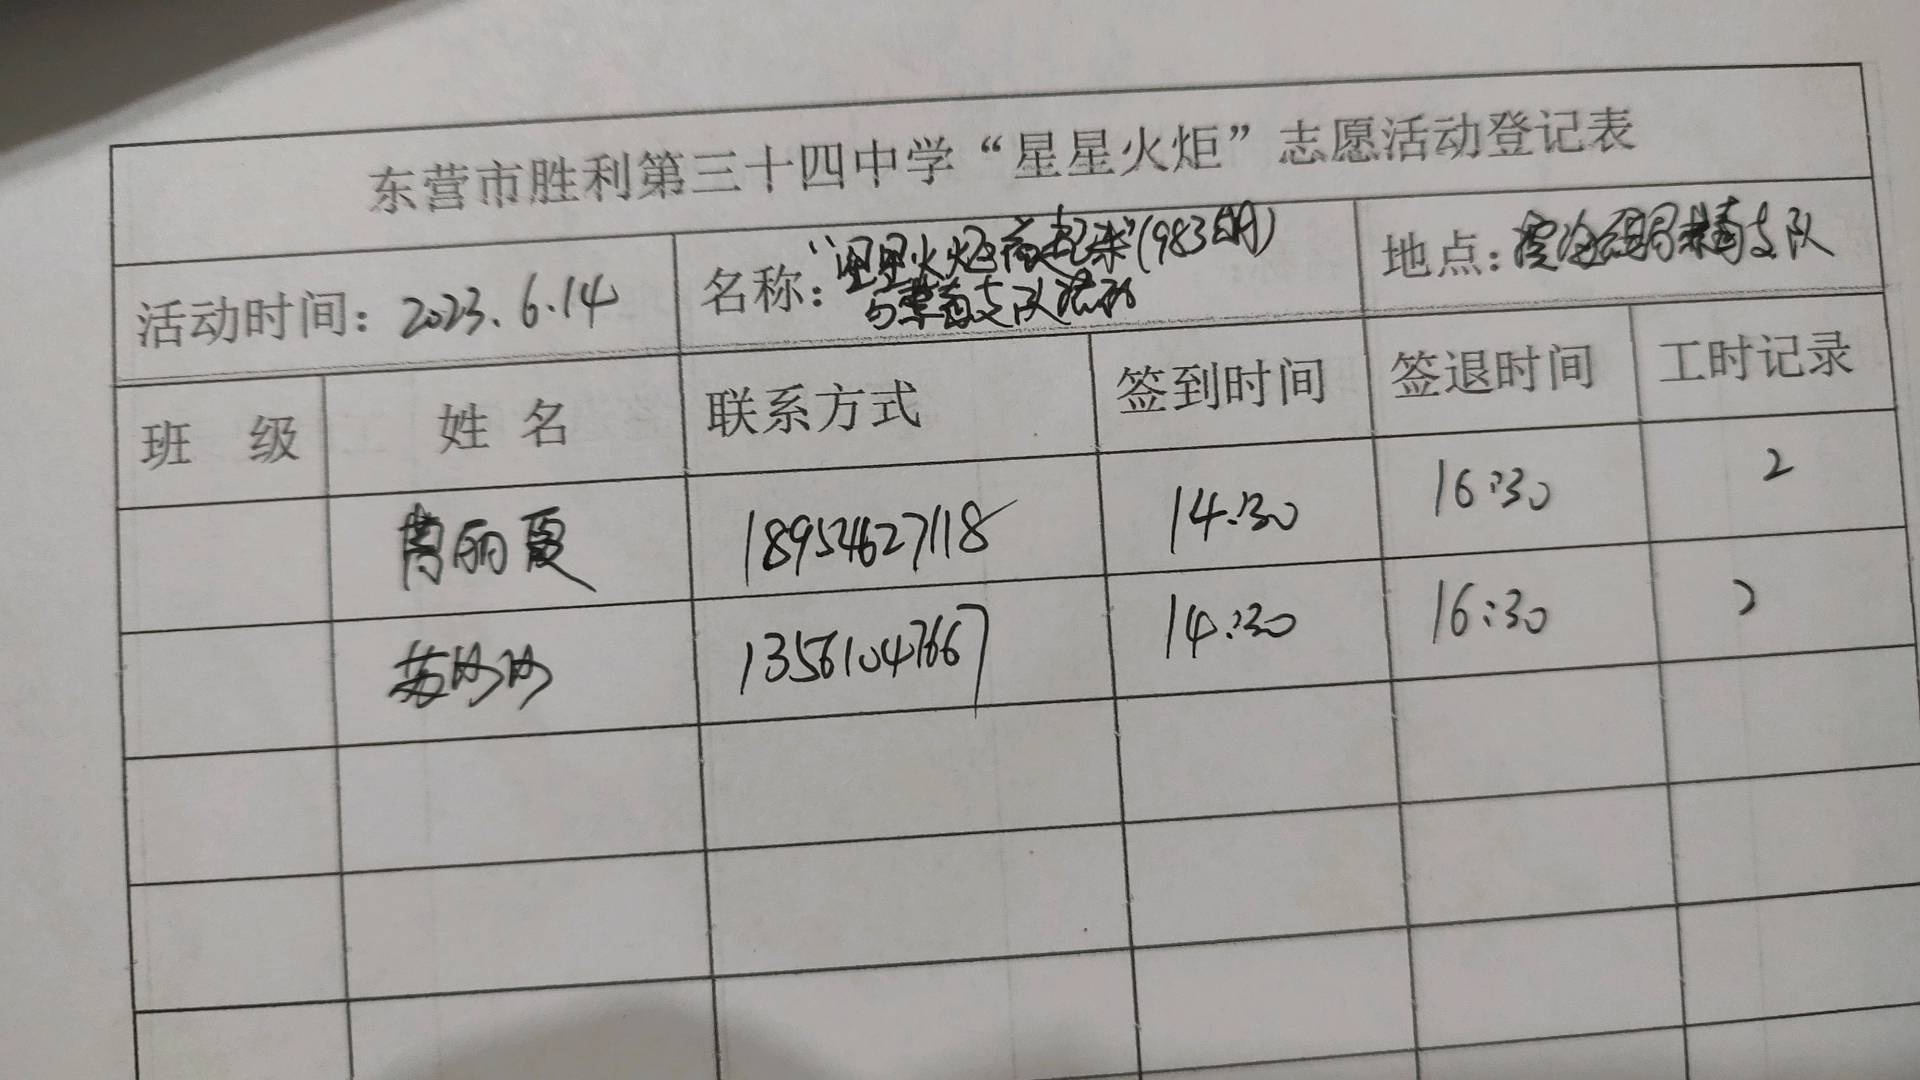 东营市胜利第三十四中学“星星火炬”志愿活动登记表
活动时间: 2023.6.14 名称: “星星火炬 起来”(983 地点: 支队
支队
班 级 姓 名 联系方式 签到时间 签退时间 工时记录
丽霞 18954627118 14:30 16:30 2
苏 13561047667 14:30 16:30 2